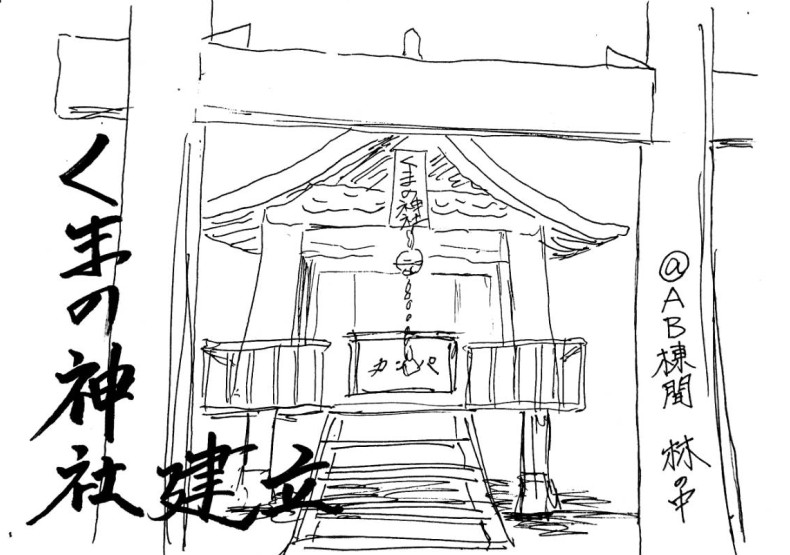 くまの神社建立
くまの神社
カンパ
@AB棟間 林の中